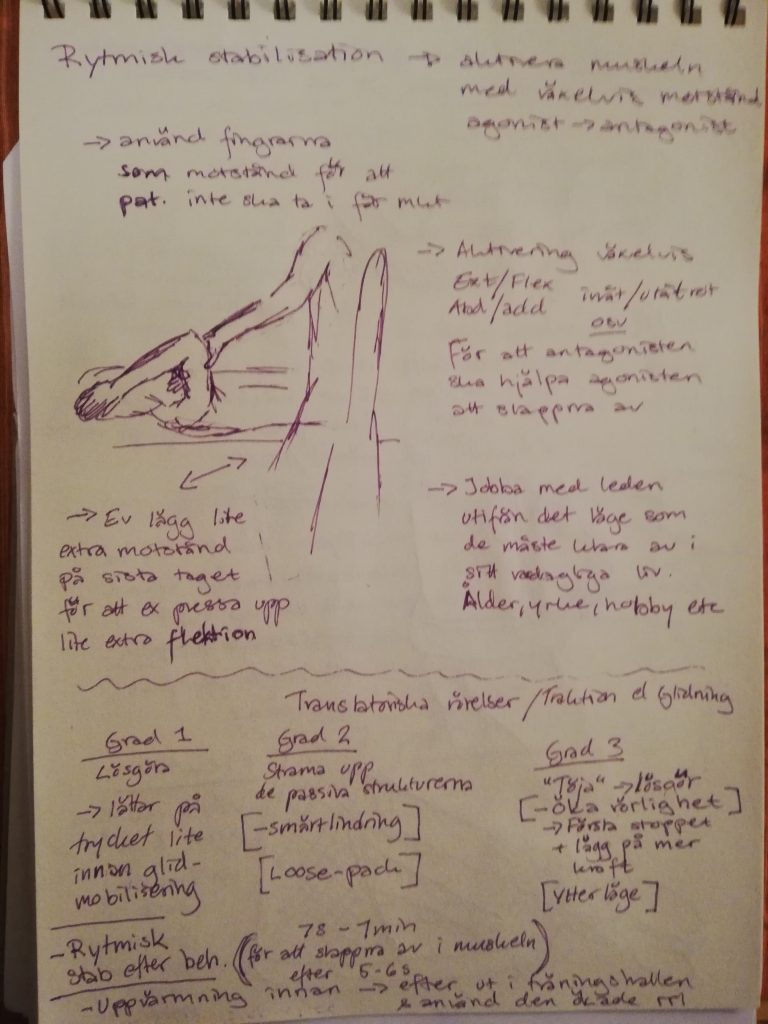 Rytmisk stabilisation → aktivera muskeln
med växelvis motstånd
agonist → antagonist
→ använd fingrarna
som motstånd för att
pat. inte ska ta i för mkt
→ Aktivering växelvis
Ext/Flex
Abd/add inåt/utåt rot
osv
För att antagonisten
ska hjälpa agonisten
att slappna av
→ Jobba med leden
utifrån det läge som
de måste klara av i
sitt vardagliga liv.
Ålder, yrke, hobby etc
→ Ev lägg lite
extra motstånd
på sista taget
för att ex pressa upp
lite extra flektion
Translatoriska rörelser / Traktion el Glidning
Grad 1
Lösgöra
→ lättar på
trycket lite
innan glid-
mobilisering
Grad 2
Strama upp
de passiva strukturerna
[-smärtlindring]
[Loose-pack]
Grad 3
"Töja" → lösgör
[-Öka rörlighet]
→ Första stoppet
+ lägg på mer
kraft
[Ytterläge]
-Rytmisk
stab efter beh.
(7s - 1min
för att slappna av i muskeln)
efter 5-6s
-Uppvärmning innan → efter ut i träningshallen
& använd den ökade rrl